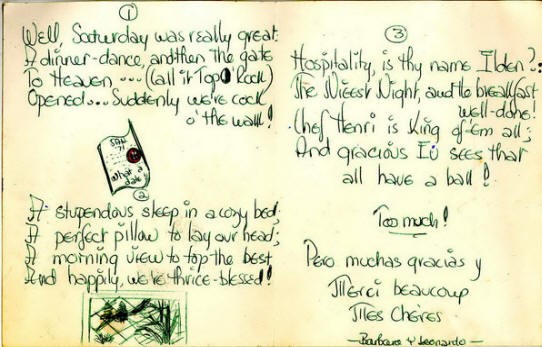 ①
Well, Saturday was really great:
A dinner-dance, and then the gate
To Heaven .... (call it Top O' Rock)
Opened... Suddenly we're cock
o' the wall!
What a
date
②
A stupendous sleep in a cozy bed;
A perfect pillow to lay our head;
A morning view to top the best
And happily, we're thrice-blessed!
③
Hospitality, is thy name Ilden?:
The Nicest Night, and the breakfast
well-done!
Chef Henri is King of 'em all;
And gracious Ev sees that
all have a ball!
Too much!
Pero muchas gracias y
Merci beaucoup
Mes Chères
—Barbara y Leonardo—